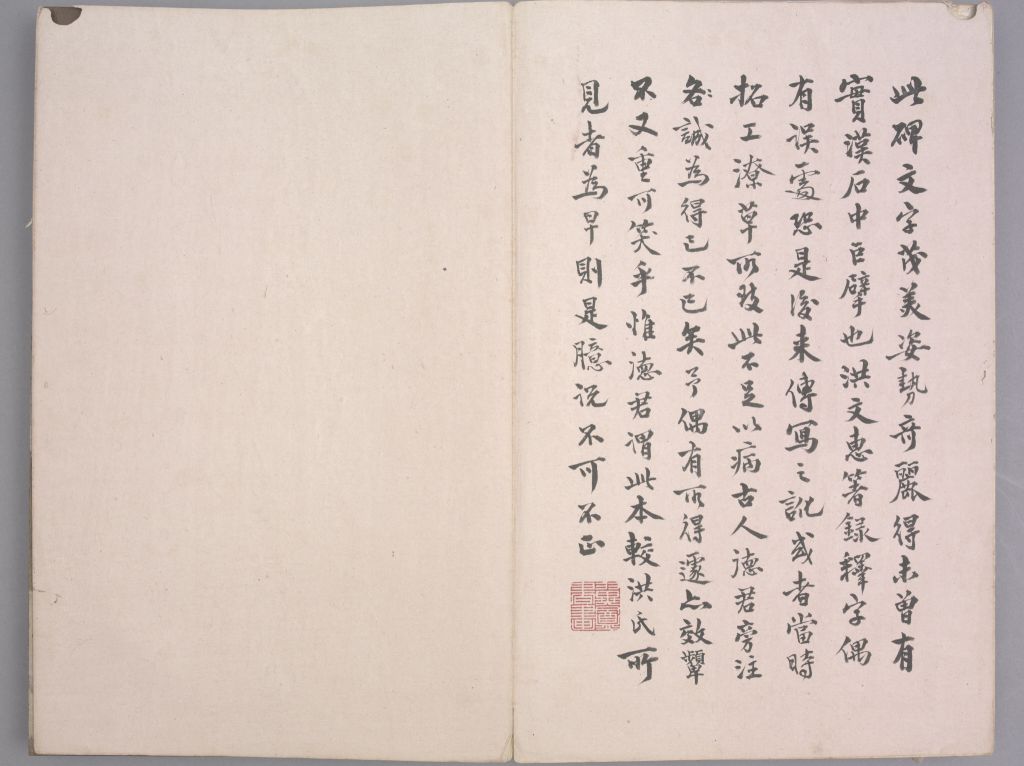 此碑文字茂美姿勢奇麗得未曾有
實漢石中巨擘也洪文惠箸錄釋字偶
有誤處恐是後來傳寫之訛或者當時
拓工潦草所致此不足以病古人德君旁注
各誠為得已不已矣予偶有所得遂亦效顰
不又重可笑乎惟德君謂此本較洪氏所
見者為早則是臆说不可不正